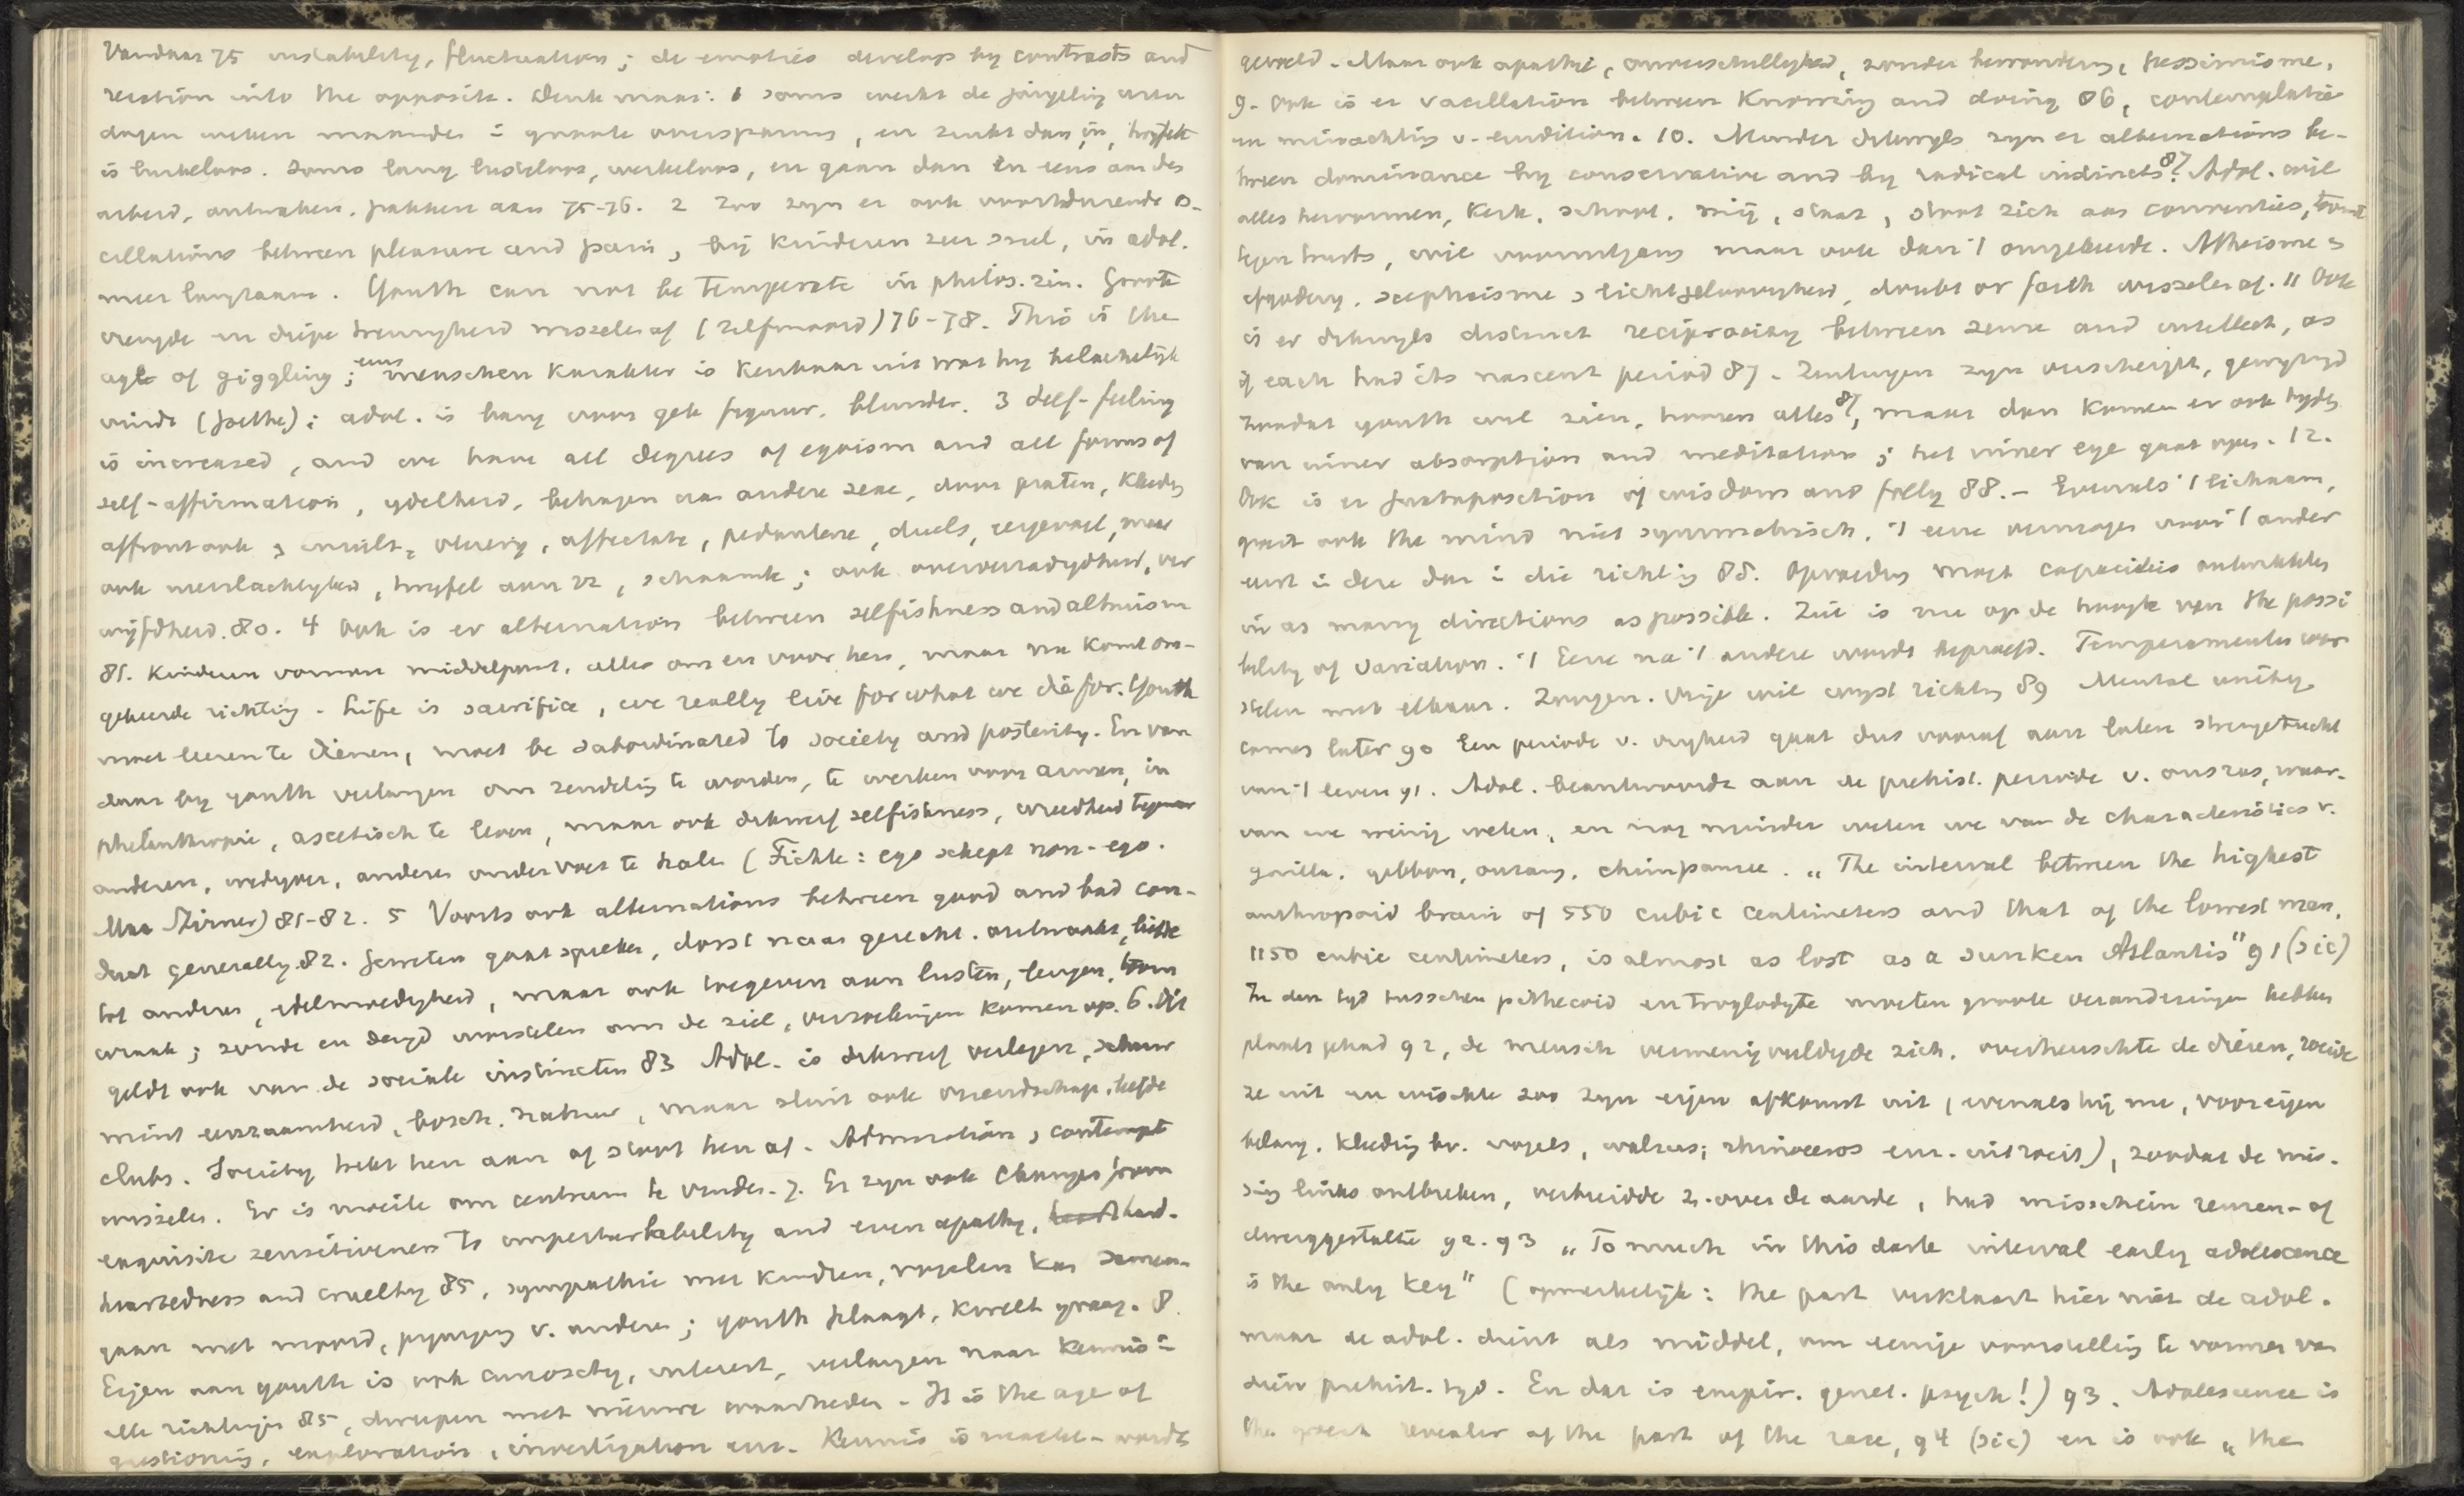 Vandaar 75 instability, fluctuation; de emoties develops by contrasts and
reaction into the opposite. Denk maar: 1 soms werkt de jongeling uren
dagen weken maanden in groote overspanning, en zinkt dan in, twijfelt
is lusteloos. Soms lang lusteloos, werkeloos, en gaan dan in eens aan den
arbeid, ontwaken, pakken aan 75-76. 2 Zoo zyn er ook voortdurende os-
cillations between pleasure and pain, bij kinderen zeer snel, in adol.
meer langzaam. Youth can not be temperate in philos. zin. Groote
vreugde en diepe treurigheid wisselen af (zelfmoord) 76-78. This is the
age of giggling; eens menschen karakter is kenbaar uit wat hy belachelijk
vindt (Goethe); adol. is bang voor gek figuur, blunder. 3 Self-feeling
is increased, and we have all degrees of egoism and all forms of
self-affirmation, ydelheid, behagen aan andere sexe, door praten, kleeding
affront ook insult, affectatie, pedanterie, duels, maar
ook neerslachtigheid, twyfel aan zz, schaamte; ook
80. 4 Ook is er alternation between selfishness and altruism
81. Kinderen vormen middelpunt, alles om en voor hen, maar nu komt om-
gekeerde richting. Life is sacrifice, we really live for what we die for. Youth
moet leeren te dienen, must be subordinated to society and posterity. En van
daar by youth verlangen om zendeling te worden, te werken voor armen, in
philanthropie, ascetisch te leven, maar ook dikwerf selfishness, wreedheid tegenover
anderen, anderen onder voet te halen (Fichte: ego schept non-ego.
Max Stirner) 81-82. 5 Voorts ook alternations between good and bad con-
duct generally 82. Geweten gaat spreken, dorst naar gerecht. ontwaakt, liefde
tot anderen, edelmoedigheid, maar ook toegeven aan lusten, leugen, toorn
wraak; zonde en deugd worstelen om de ziel, verzoekingen komen op. 6. Dit
geldt ook van de sociale instincten 83 Adol. is dikwerf verlegen, schuw
mint eenzaamheid, bosch, natuur, maar sluit ook vriendschap, liefde
clubs. Society trekt hen aan of stoot hen af. Admiration, contempt
wisselen. Er is moeite om centrum te vinden. 7. Er zyn ook changes from
exquisite sensitiveness to imperturbability and even apathy, hard-
heartedness and cruelty 85, sympathie met kinderen, vogelen kan samen-
gaan met moord, pyniging v. anderen; youth plaagt, kwelt graag. 8.
Eigen aan youth is ook curiosity, interest, verlangen naar kennis in
alle richtingen 85, dweepen met nieuwe waarheden. It is the age of
questioning, exploration, investigation enz. Kennis is macht- wordt
Maar ook apathie, onverschilligheid, zonder bewondering, pessimisme.
9. Ook is er vacillation between knowing and doing 86, contemplatie
en minachting v. erudition. 10. Minder dikwyls zyn er alternations be-
tween dominance by conservative and by radical instincts 87. Adol. wil
alles hervormen, kerk, school, mij, staat, stoot zich aan conventies, toornt
tegen trusts, wil vooruitgang maar ook dan 't omgekeerde. Atheisme en
afgodery, scepticisme en lichtgeloovigheid, doubt or faith wisselen af. 11 Ook
is er dikwyls distinct reciprocity between sense and intellect, as
if each had its nascent period 87. Zintuigen zyn verscherpt, gewyzigd
zoodat youth wil zien, hooren alles 87, maar dan komen er ook tyden
van inner absorption and meditation; het inner eye gaat open. 12.
Ook is er juxtaposition of wisdom and folly 88.- Evenals 't lichaam,
groeit ook the mind niet symmetrisch, 't eene vermogen voor 't ander
eerst in deze dan in die richting 88. Opvoeding moet capacities ontwikkelen
in as many directions as possible. Ziel is nu op de hoogte van the possi
bility of variation. 't Eene na 't andere wordt beproefd. Temperamenten wor
stelen met elkaar. Zorgen. Vrije wil wyst richting 89 Mental unity
comes later 90 Een periode v. vryheid gaat dus vooraf aan later strenge tucht
van 't leven 91. Adol. beantwoordt aan de prehist. periode v. ons ras, waar-
van we weinig weten, en nog minder weten we van de characteristics v.
gorilla, gibbon, ourang, chimpansee. „The interval between the highest
anthropoid brain of 550 cubic centimeters and that of the lowest man,
1150 cubic centimeters, is almost as lost as a sunken Atlantis" 91 (sic)
In den tyd tusschen pithecoid en troglodyte moeten groote veranderingen hebben
plaats gehad 92, de mensch vermenigvuldigde zich, overheerschte de dieren, roeide
ze uit en wischte zoo zyn eigen afkomst uit (evenals hij nu, voor eigen
belang, kleeding bv. vogels, walrus, rhinoceros enz. uitroeit), zoodat de mis-
sing links ontbreken, verbreidde z. over de aarde, had misschien reuzen- of
dwerggestalte 92. 93 „To much in this dark interval early adolescence
is the only key" (opmerkelijk: the past verklaart hier niet de adol.
maar de adol. dient als middel, om eenige voorstelling te vormen van
dien prehist. tyd. En dat is empir. genet. psych!) 93. Adolescence is
the great revealer of the past of the race, 94 (sic) en is ook „the